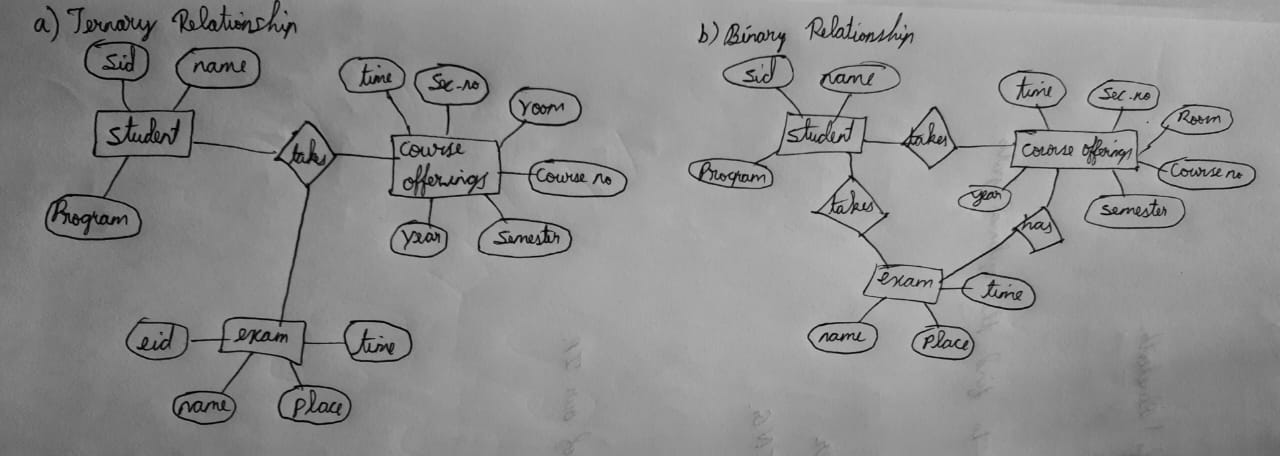 a) Ternary Relationship
Sid
name
student
Program
takes
time
Sec-no
room
course
offerings
Course no
year
Semester
eid
exam
time
name
place
b) Binary Relationship
Sid
name
student
Program
takes
time
Sec-no
Room
course offerings
Course no
year
semester
takes
has
exam
time
name
place